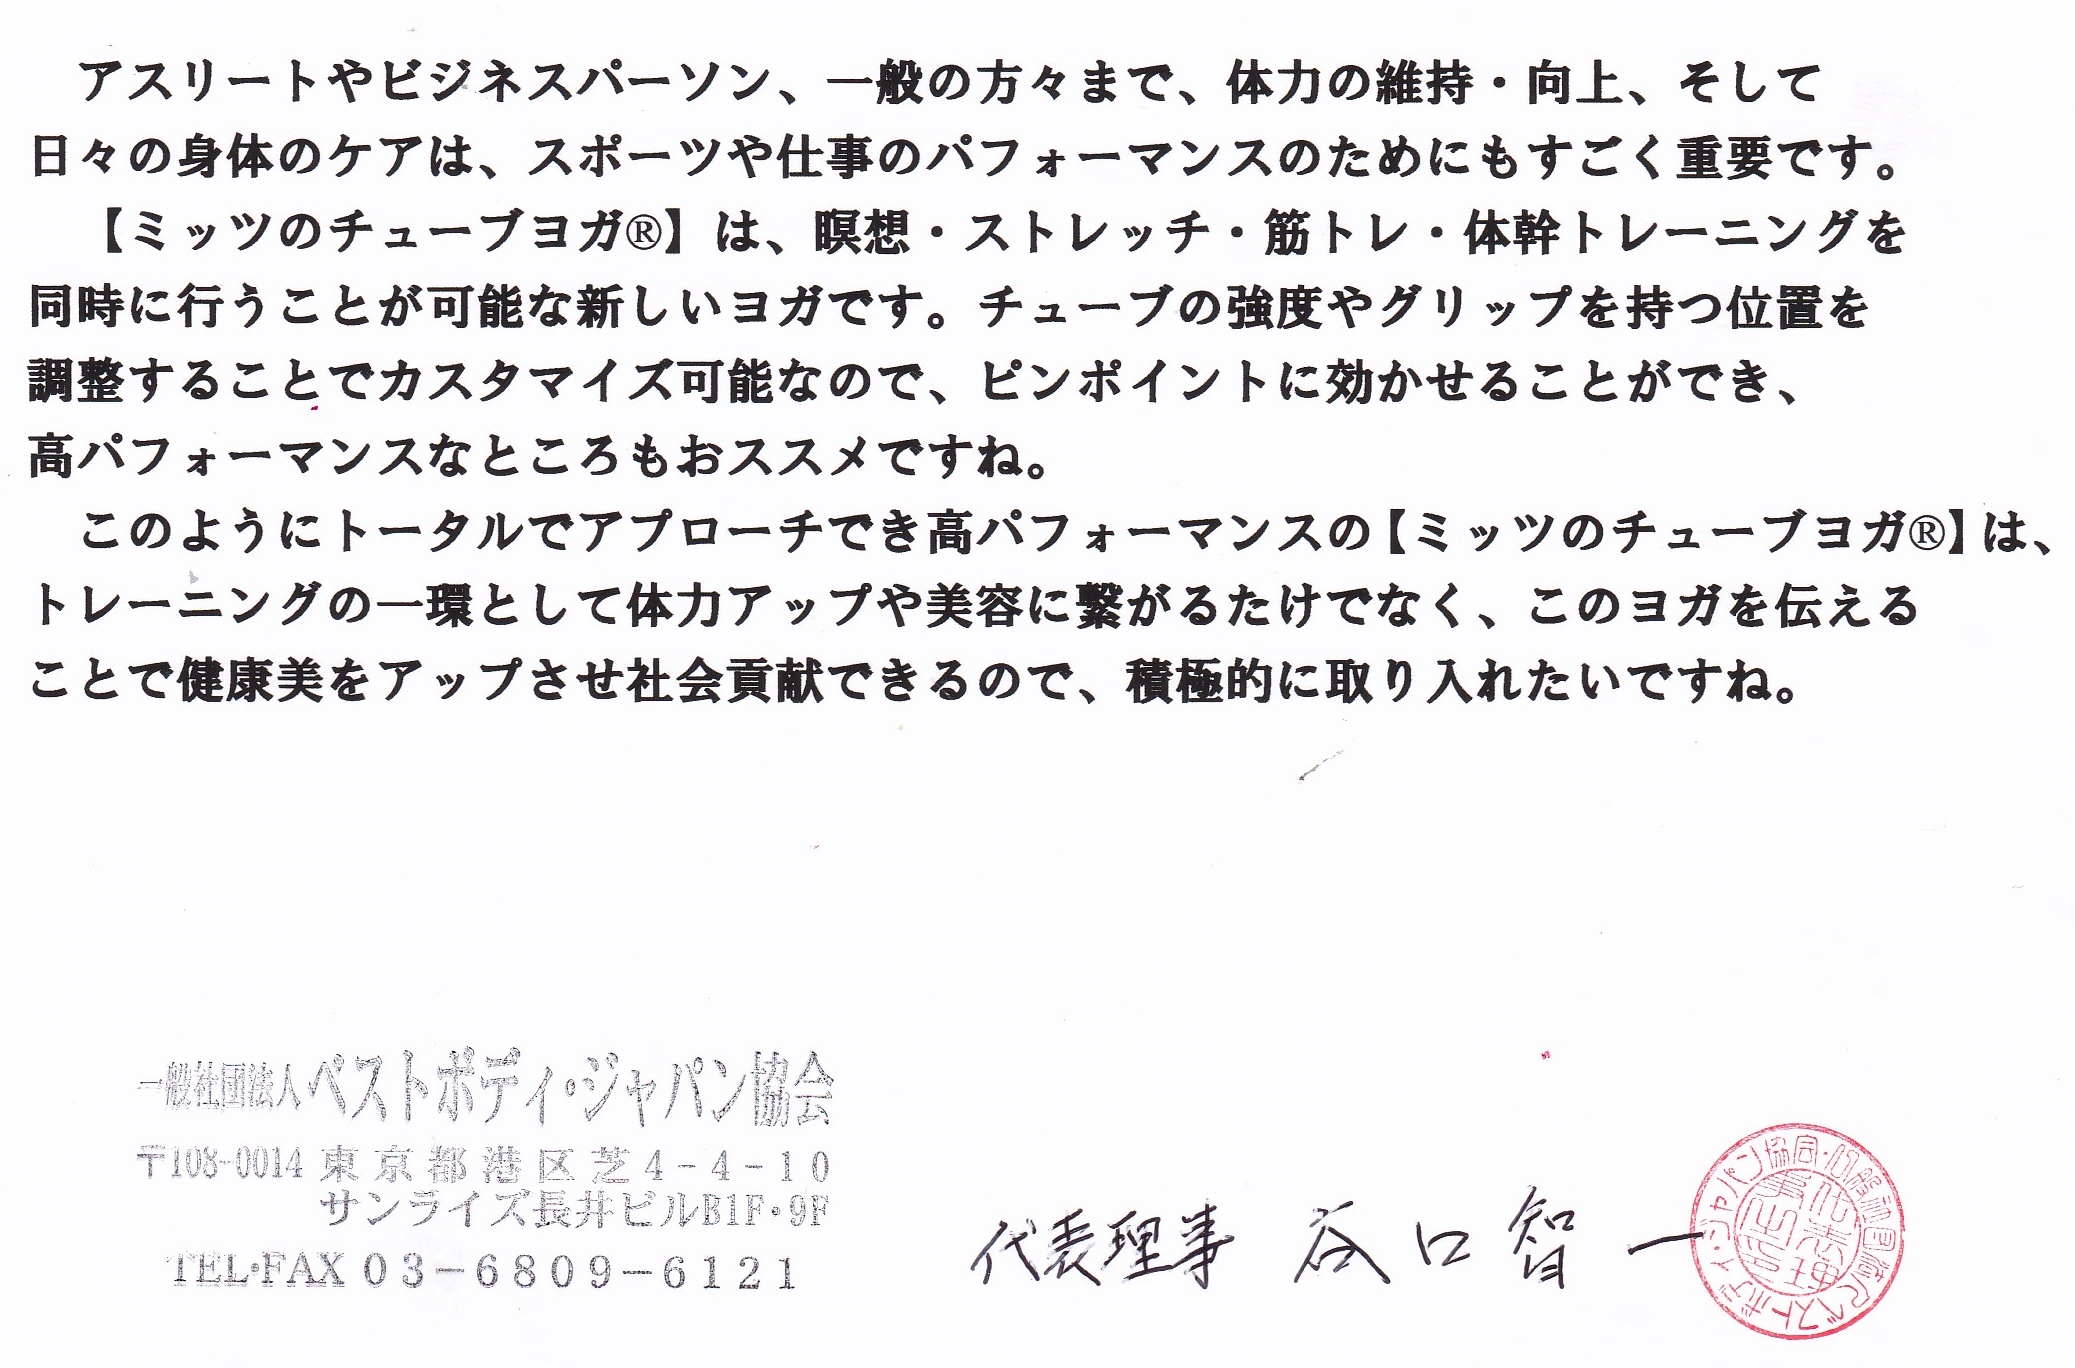 アスリートやビジネスパーソン、一般の方々まで、体力の維持・向上、そして
日々の身体のケアは、スポーツや仕事のパフォーマンスのためにもすごく重要です。
【ミッツのチューブヨガ®】は、瞑想・ストレッチ・筋トレ・体幹トレーニングを
同時に行うことが可能な新しいヨガです。チューブの強度やグリップを持つ位置を
調整することでカスタマイズ可能なので、ピンポイントに効かせることができ、
高パフォーマンスなところもおススメですね。
このようにトータルでアプローチでき高パフォーマンスの【ミッツのチューブヨガ®】は、
トレーニングの一環として体力アップや美容に繋がるたけでなく、このヨガを伝える
ことで健康美をアップさせ社会貢献できるので、積極的に取り入れたいですね。
一般社団法人ベストボディ・ジャパン協会
〒108-0014 東京都港区芝4-4-10
サンライズ長井ビルB1F・9F
TEL・FAX 03-6809-6121
代表理事 谷口智一